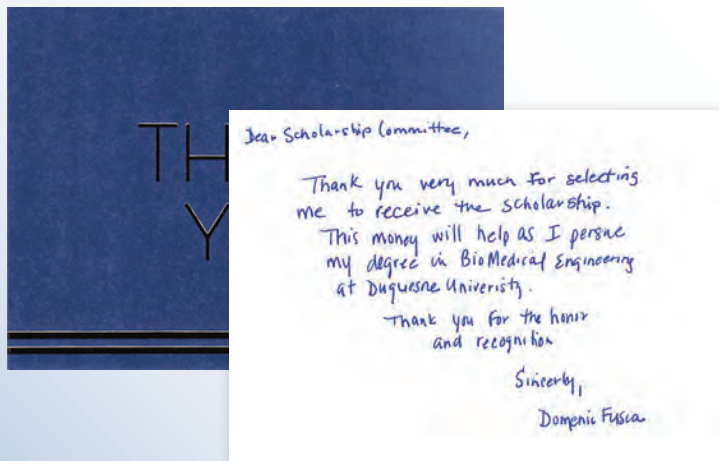 TH
Y
Dear Scholarship Committee,
Thank you very much for selecting
me to receive the scholarship.
This money will help as I persue
my degree in BioMedical Engineering
at Duquesne Univeristy.
Thank you for the honor
and recognition
Sincerly,
Domenic Fusca